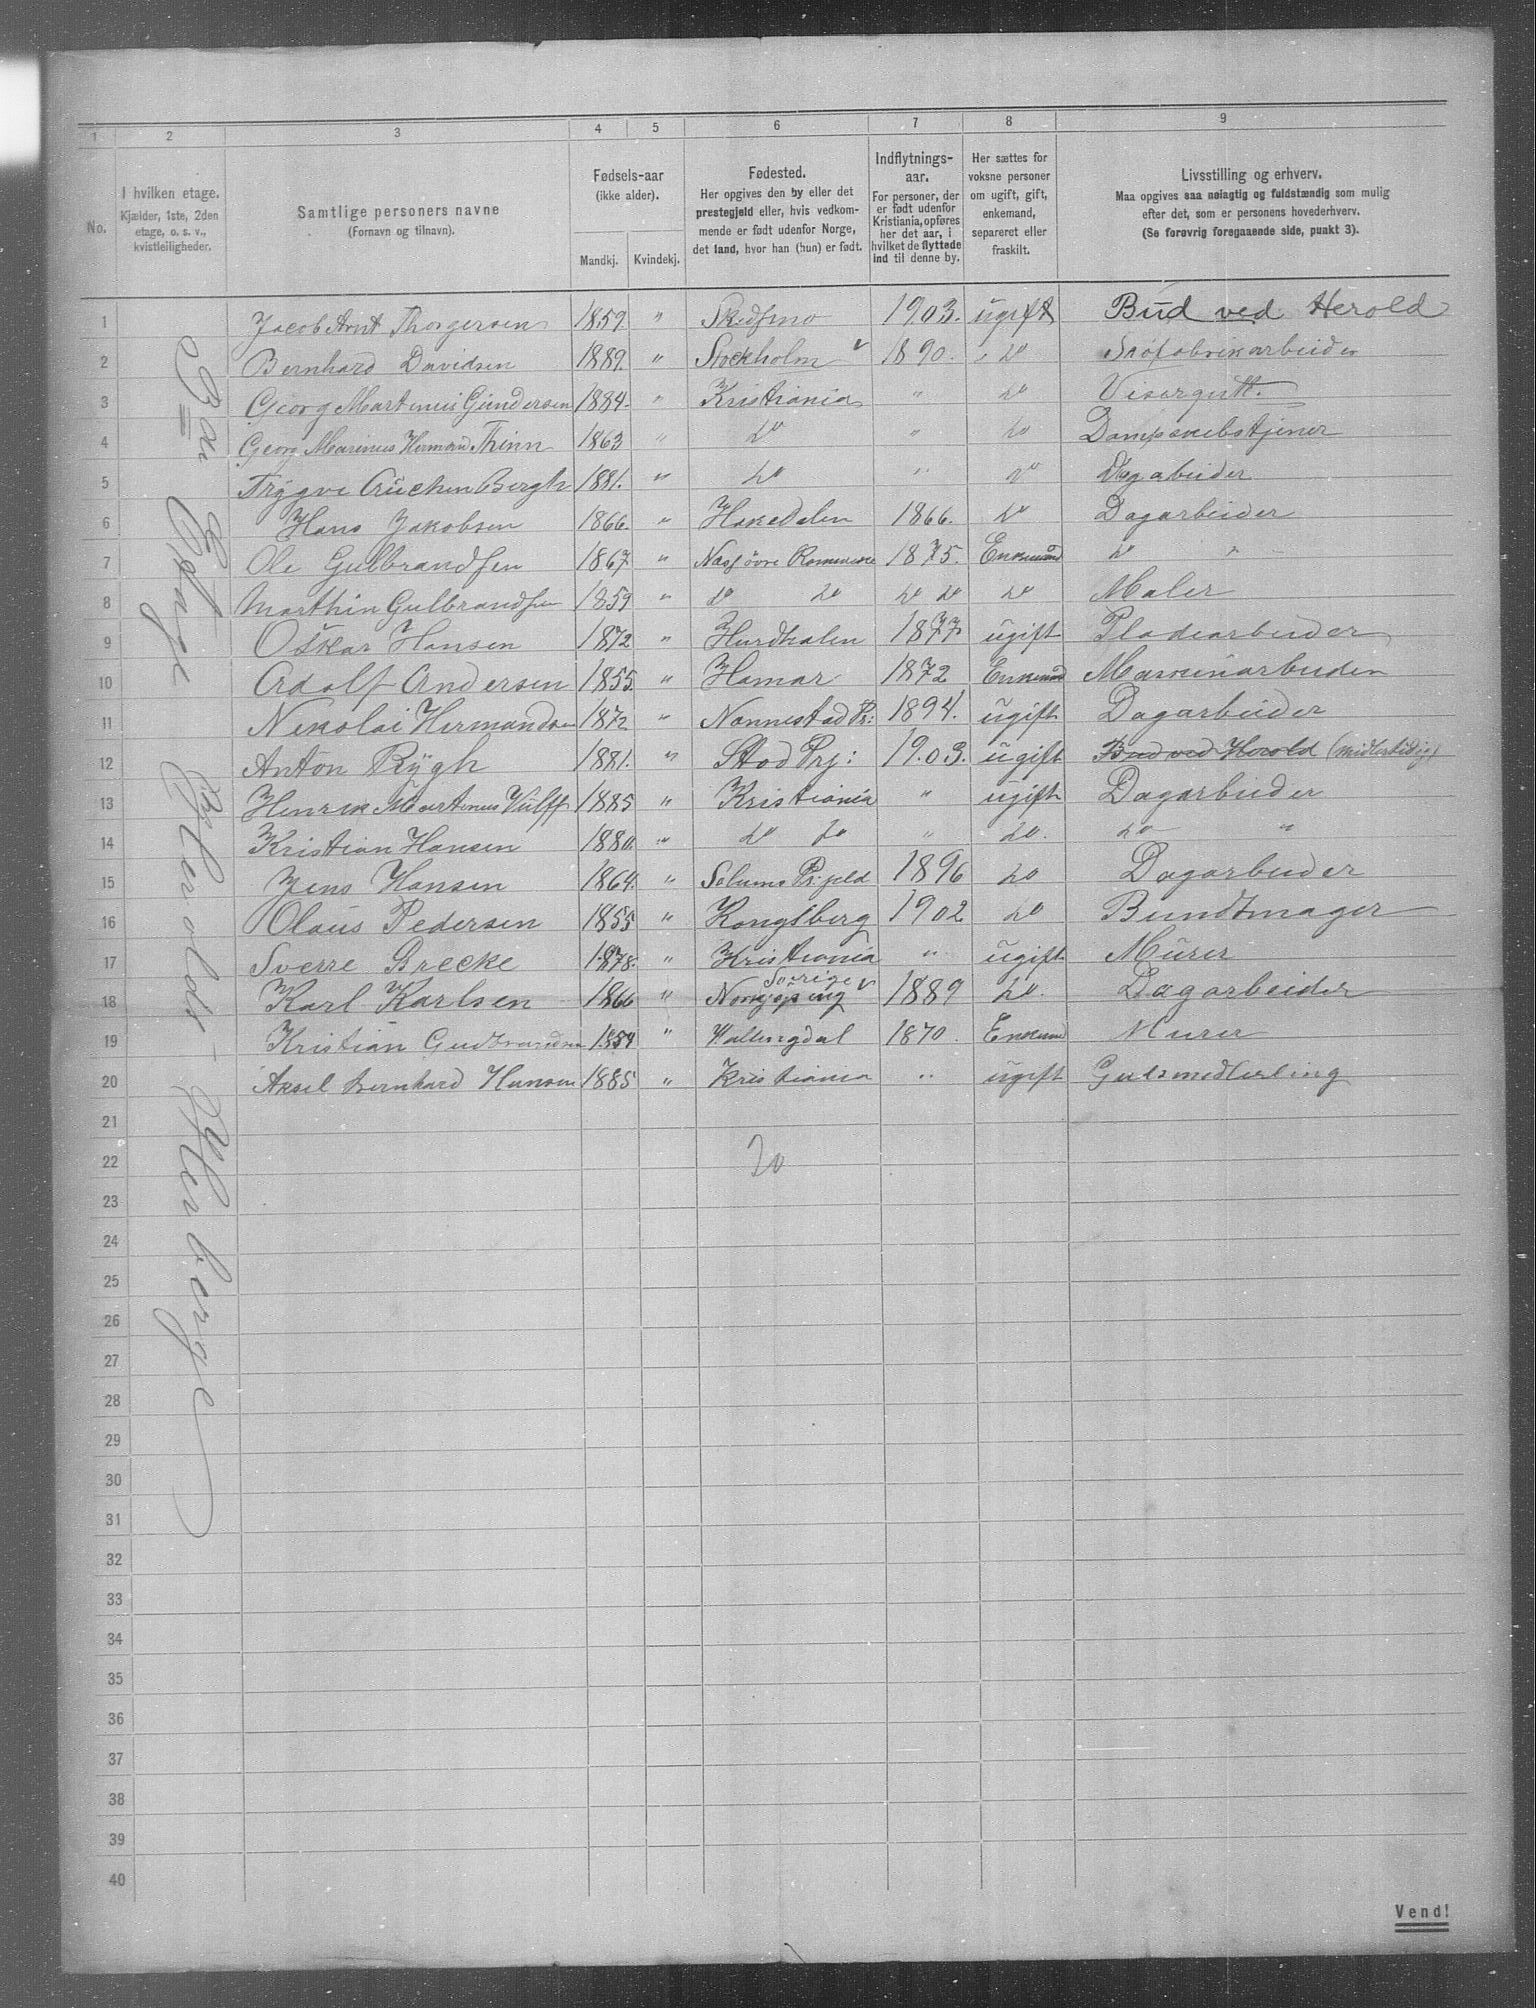 1 2 3 4 5 6 7 8 9
No.
I hvilken etage.
Kjælder, 1ste, 2den
etage, o. s. v.,
kvistleiligheder.
Samtlige personers navne
(Fornavn og tilnavn).
Fødsels-aar
(ikke alder).
Mandkj. Kvindekj.
Fødested.
Her opgives den by eller det
prestegjeld eller, hvis vedkom-
mende er født udenfor Norge,
det land, hvor han (hun) er født.
Indflytnings-
aar.
For personer, der
er født udenfor
Kristiania, opføres
her det aar, i
hvilket de flyttede
ind til denne by.
Her sættes for
voksne personer
om ugift, gift,
enkemand,
separeret eller
fraskilt.
Livsstilling og erhverv.
Maa opgives saa nøiagtig og fuldstændig som mulig
efter det, som er personens hovederhverv.
(Se forøvrig foregaaende side, punkt 3).
Etage Herolds - Herberge
1 Jacob Arnt Thorgersen 1859 " Skedsmo 1903. ugift Bud ved Herold
2 Bernhard Davidsen 1889. " Stockholm v 1890. do Skofabrikarbeider
3 Georg Martinius Gundersen 1884. " Kristiania " do Visergutt.
4 Georg Marinius Herman Thinn 1863 " do " do Dampskibstjener
5 Trygve Auchen Bergh 1881. " do " do Dagabeider
6 Hans Jakobsen 1866. " Hakedalen 1866. do Dagarbeider
7 Ole Gulbrandsen 1867 " Næs øvre Romerike 1875. Enkemand do "
8 Marthin Gulbrandsen 1859 " do do do do do Maler
9 Oskar Hansen 1872 " Hurdhalen 1877 ugift Pladearbeider
10 Adolf Andersen 1855 " Hamar 1872 Enkemand Maskinarbeider
11 Nikolai Hermandsen 1872 " Nannestad Pr: 1894. ugift Dagarbeider
12 Anton Rygh 1881. " Stod Prj: 1903. ugift Bud ved Herold (midlertidig)
13 Henrik Martenus Wulff 1885 " Kristiania " ugift Dagarbeider
14 Kristian Hansen 1880. " do do " do. do "
15 Jens Hansen 1864. " Solums Pr.gjeld 1896 do Dagarbeider
16 Olaus Pedersen 1855 " Kongsberg 1902 do Bundtmager
17 Sverre Brecke 1878. " Kristiania " ugift Murer
18 Karl Karlsen 1866 " Norkjøping Sverige v 1889 do. Dagarbeider
19 Kristian Gudbrandsen 1854 " Hallingdal 1870. Enkemand Murer
20 Aksel Bernhard Hansen 1885 " Kristiania " ugift Guldsmedlerling
21
22 20
23
24
25
26
27
28
29
30
31
32
33
34
35
36
37
38
39
40
Vend!